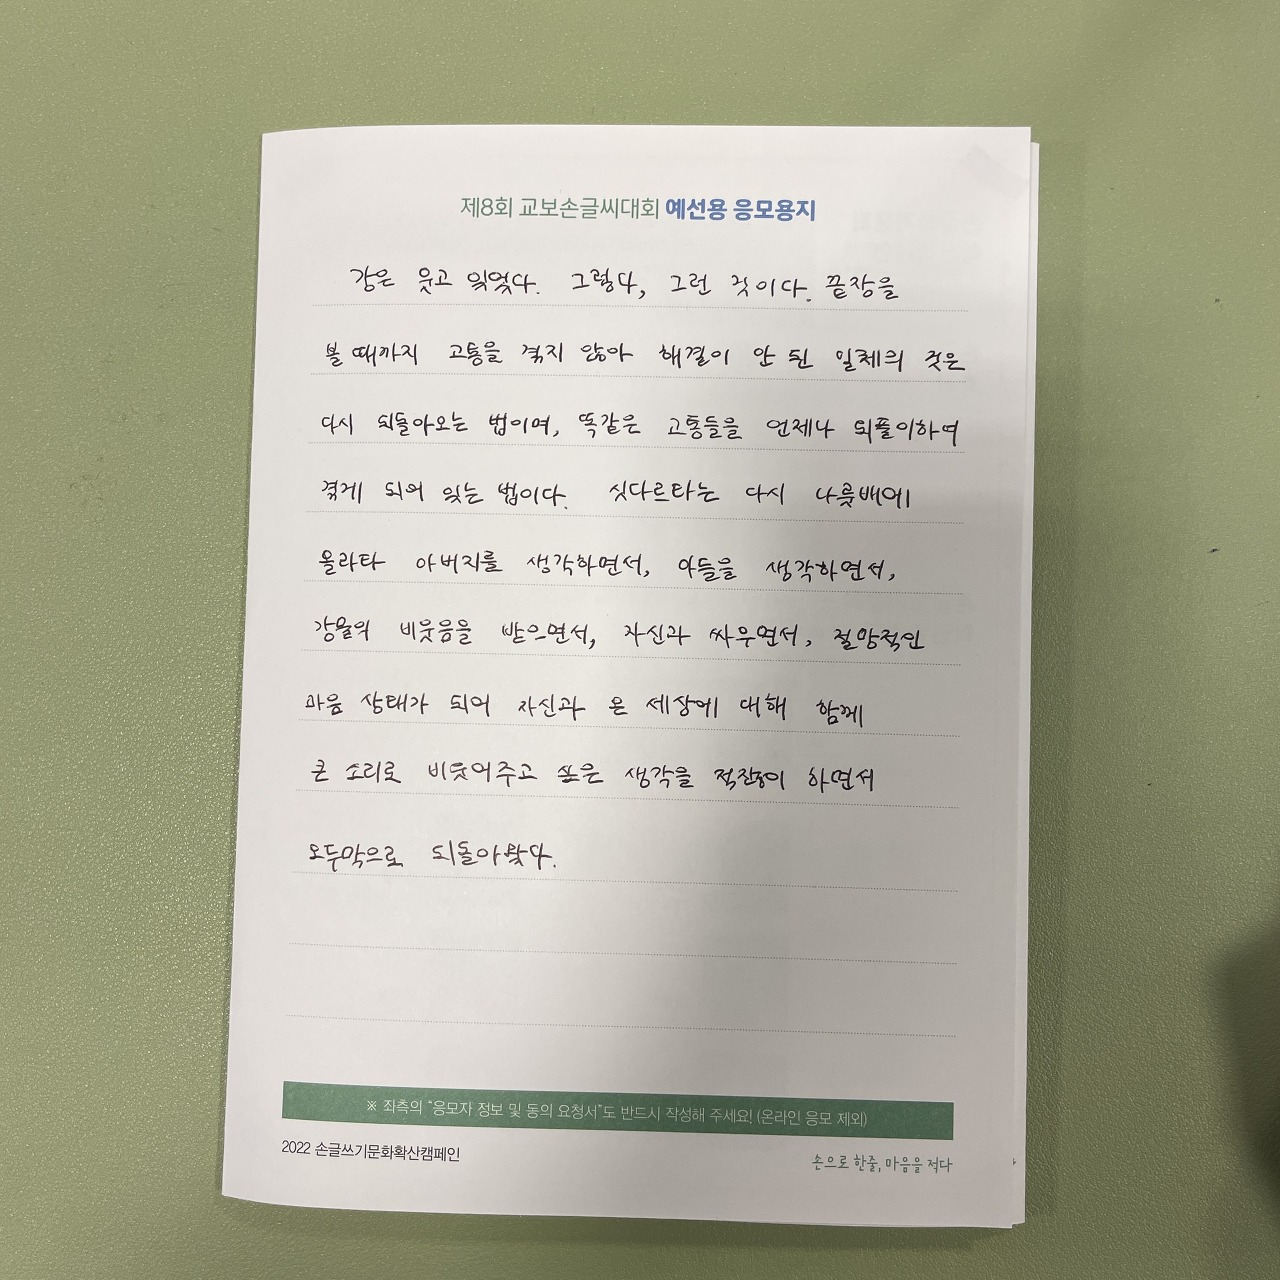 제8회 교보손글씨대회 예선용 응모용지
강은 웃고 있었다. 그렇다, 그런 것이다. 끝장을
볼 때까지 고통을 겪지 않아 해결이 안 된 일체의 것은
다시 되돌아오는 법이며, 똑같은 고통들을 언제나 되풀이하여
겪게 되어 있는 법이다. 싯다르타는 다시 나룻배에
올라타 아버지를 생각하면서, 아들을 생각하면서,
강물의 비웃음을 받으면서, 자신과 싸우면서, 절망적인
마음 상태가 되어 자신과 온 세상에 대해 함께
큰 소리로 비웃어주고 싶은 생각을 적잖이 하면서
오두막으로 되돌아왔다.
※ 좌측의 “응모자 정보 및 동의 요청서”도 반드시 작성해 주세요! (온라인 응모 제외)
2022 손글쓰기문화확산캠페인
손으로 한줄, 마음을 적다